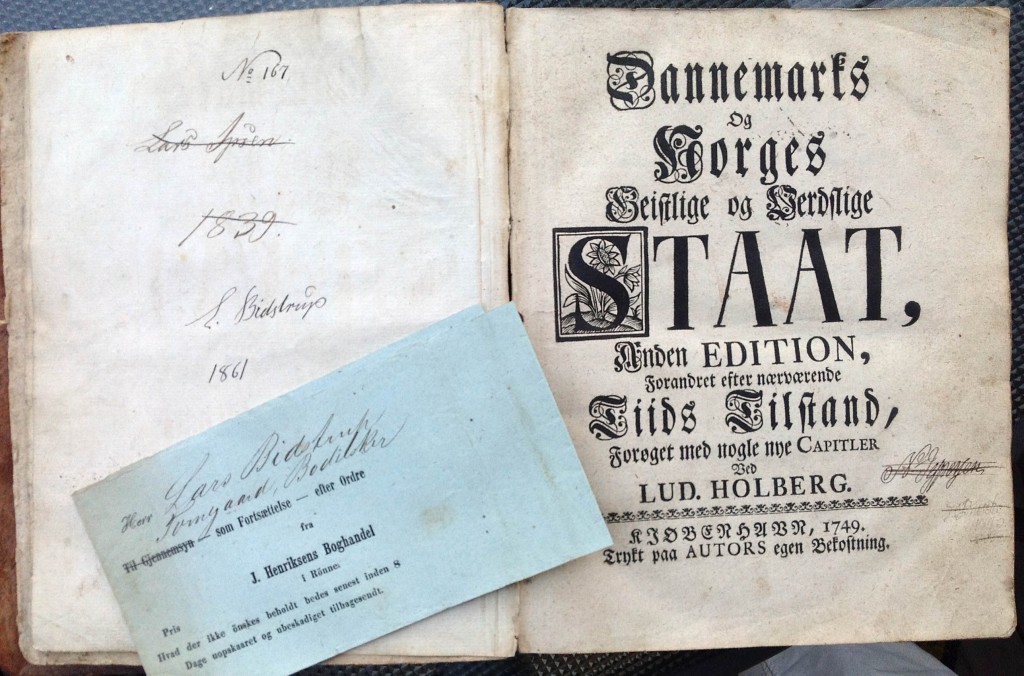 No 167
Lars Ipsen
1839.
L. Bidstrup
1861
Herr Lars Bidstrup
Tomgaard, Bodilsker
Til Gjennemsyn — som Fortsættelse — efter Ordre
fra
J. Henriksens Boghandel
i Rönne.
Pris
Hvad der ikke önskes beholdt bedes senest inden 8
Dage uopskaaret og ubeskadiget tilbagesendt.
Dannemarks
Og
Norges
Geistlige og Verdslige
STAAT,
Anden EDITION,
Forandret efter nærværende
Tiids Tilstand,
Forøget med nogle nye CAPITLER
Ved
LUD. HOLBERG.
KIØBENHAVN, 1749.
Trykt paa AUTORS egen Bekostning.